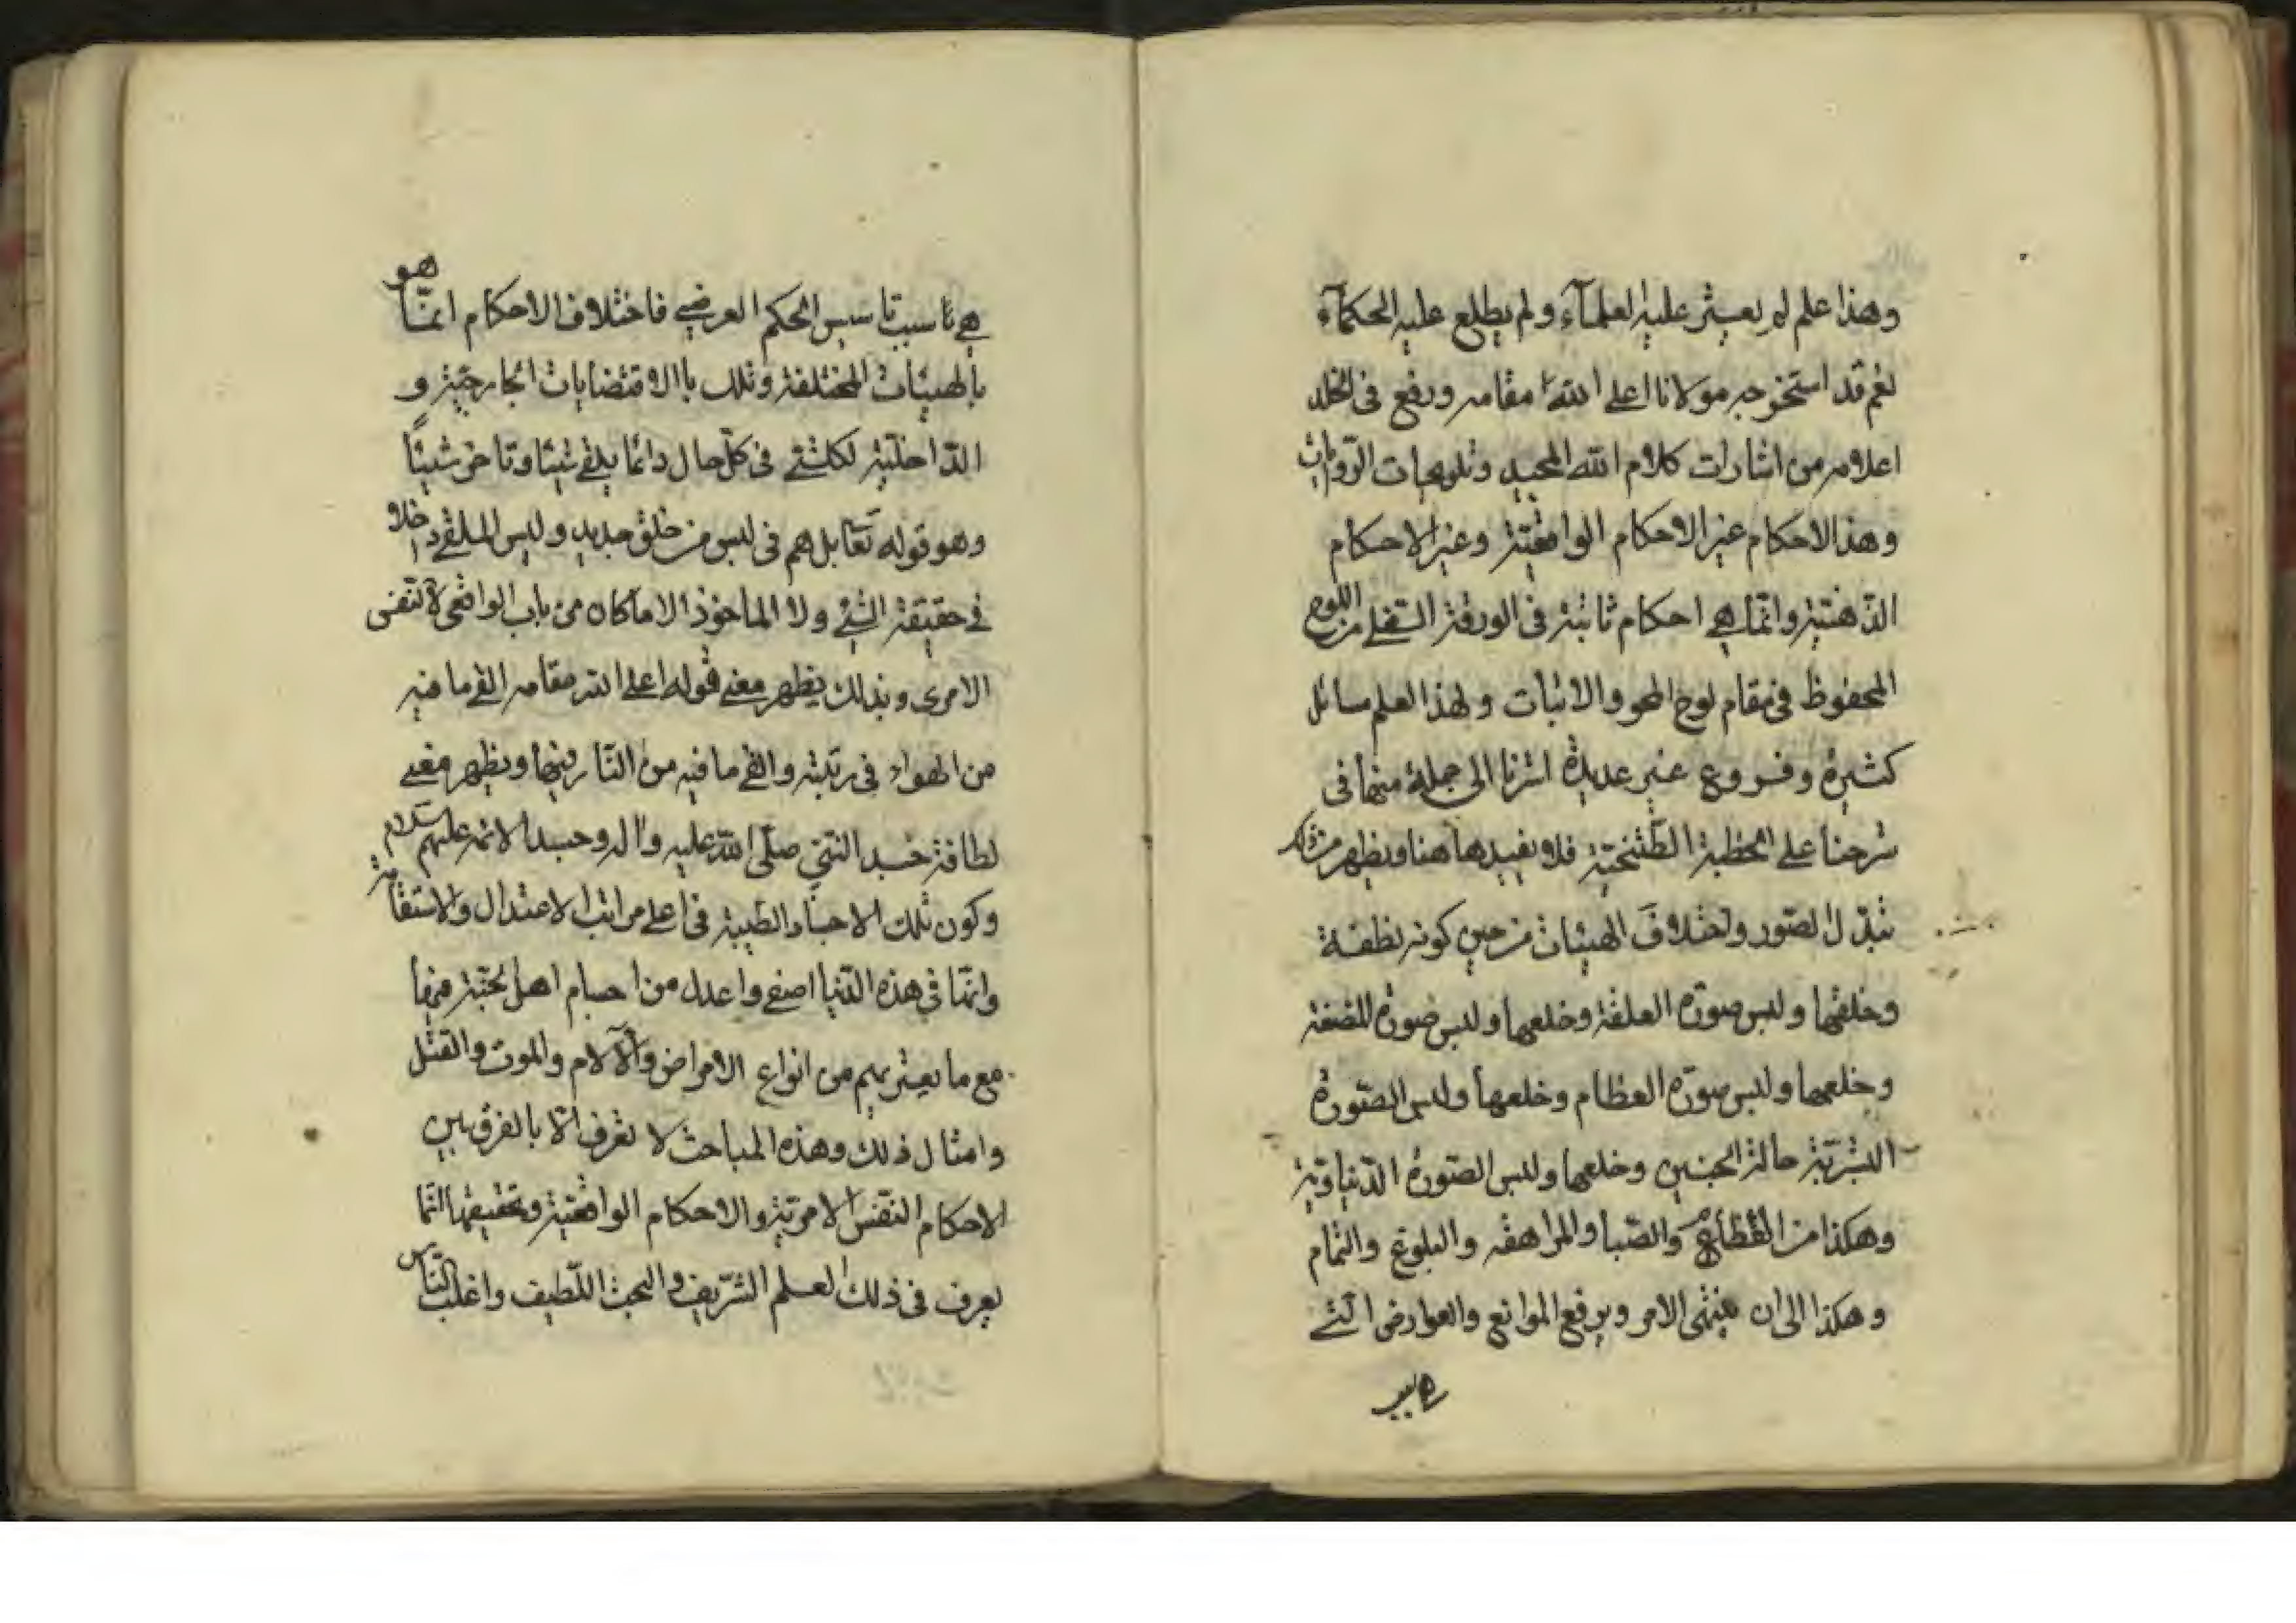 وهذا علم لم يعثر عليه العلمآء ولم يطلع عليه الحكمآء
نعم قد استخرجه مولانا اعلى الله مقامه ورفع فى الخلد
اعلامه من اشارات كلام الله المجيد وتلويحات الروايات
وهذا الاحكام غير الاحكام الواقعيّة وغير الاحكام
الذّهنيّة وانّما هي احكام ثابتة فى الورقة السّفلى من اللوح
المحفوظ فى مقام لوح المحو والاثبات ولهذا العلم مسائل
كثيرة وفروع غير عديدة اشرنا الى جملة منها فى
شرحنا على الخطبة الطّتنجيّة فلا نعيدها هنا ويظهر من ذلك
تبدّل الصّور واختلاف الهيئات من حين كونه نطفة
وخلعها ولبس صورة العلقة وخلعها ولبس صورة المضغة
وخلعها ولبس صورة العظام وخلعها ولبس الصّورة
البشريّة حالة الجنين وخلعها ولبس الصّورة الدّنياويّة
وهكذا من الصّبا والمراهقه والبلوغ والتمام
وهكذا الى ان ينتهى الامر ويرفع الموانع والعوارض الّتي
هي تاسيس الحكم العرضي فاختلاف الاحكام انّما هو
بالهيئات المختلفة وتلك باالاقتضايات الخارجيّة و
الدّاخليّة لكلشئ فى كلّ حال دائما يلقى شيئا وتاخذ شيئًا
وهو قوله تعا بل هم فى لبس من خلق جديد وليس الملقى داخلا
في حقيقة الشئ ولا الماخوذ الا ما كان من باب الواقعى لا النفس
الامرى وبذلك يظهر معنى قوله اعلى الله مقامه القى ما فيه
من الهواء فى رتبته والقى ما فيه من النّار فيها ويظهر معنى
لطافة جسد النّبي صلّى الله عليه وآله وجسد الائمه عليهم السلام
وكون تلك الاجساد الطيبة فى اعلى مراتب الاعتدال والاستقامة
وانّها في هذه الدّنيا اصفى واعدل من اجسام اهل الجنّة فيها
مع ما يعتريهم من انواع الامراض والآلام والموت والقتل
وامثال ذلك وهذه المباحث لا تعرف الّا بالفرق بين
الاحكام النّفس الامريّة والاحكام الواقعيّة وتحقيقها انّما
يعرف فى ذلك العلم الشّريف والبحث اللّطيف واغلب النّاس